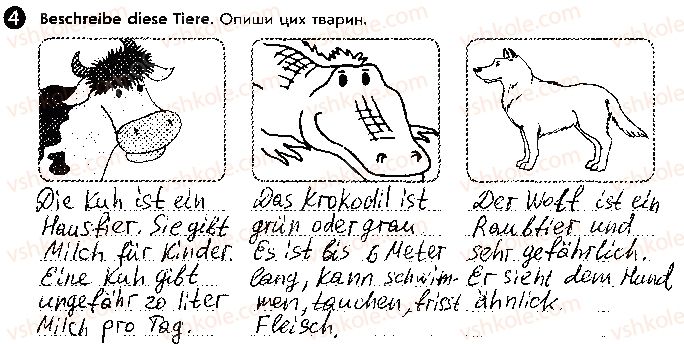 4 Beschreibe diese Tiere. Опиши цих тварин.
Die Kuh ist ein
Haustier. Sie gibt
Milch für Kinder.
Eine Kuh gibt
ungefähr 20 liter
Milch pro Tag.
Das Krokodil ist
grün oder grau.
Es ist bis 6 Meter
lang, kann schwim-
men, tauchen, frisst
Fleisch.
Der Wolf ist ein
Raubtier und
sehr gefährlich.
Er sieht dem Hund
ähnlick.
vshkole.com